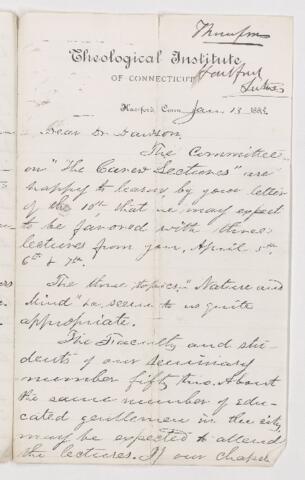 Thompson
Theological Institute
OF CONNECTICUT
Hartford
Hartford, Conn., Jan. 13 1883
Dear Dr. Dawson,
The Committee
on "The Carew Lectures" are
happy to learn by your letter
of the 10th that we may expect
to be favored with three
lectures from you, April 5th,
6th & 7th.
The three topics, "Nature and
Mind" &c, seem to us quite
appropriate.
The Faculty and stu-
dents of our seminary
number fifty two. About
the same number of edu-
cated gentlemen in the city,
may be expected to attend
the lectures. If our chapel